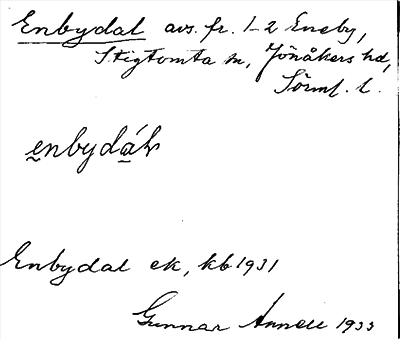 Enbydal avs. fr. 1-2 Eneby,
Stigtomta sn, Jönåkers hd,
Sörml. l.
enbydáɫ
Enbydal ek, kb 1931
Gunnar Annell 1933